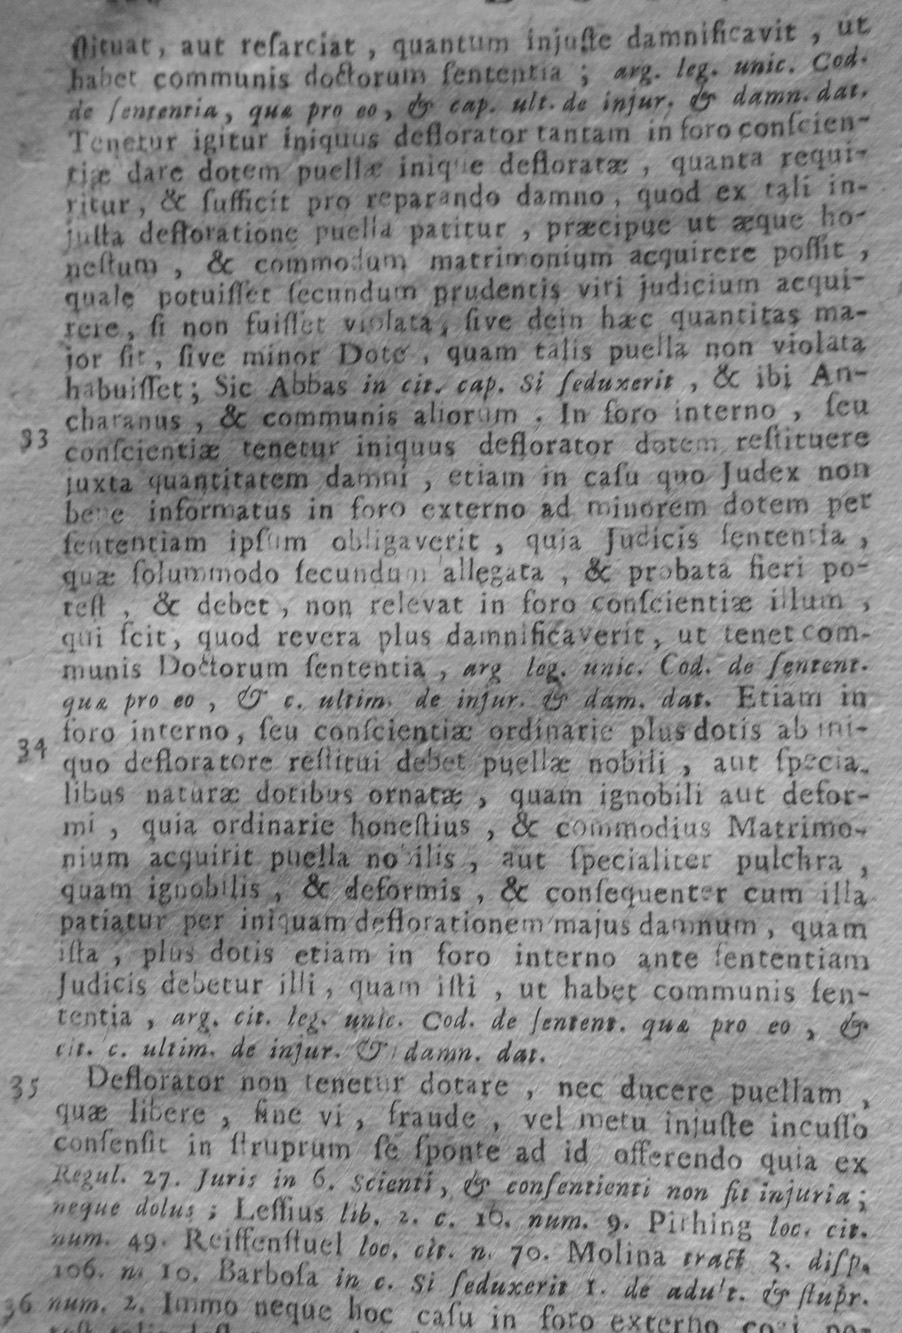 ſtituat, aut reſarciat, quantum injuſte damnificavit, ut
habet communis doctorum ſententia; arg. leg. unic. Cod.
de ſententia, quæ pro eo, & cap. ult. de injur. & damn. dat.
Tenetur igitur iniquus deflorator tantam in foro conſcien-
tiæ dare dotem puellæ inique defloratæ, quanta requi-
ritur, & ſufficit pro reparando damno, quod ex tali in-
juſta defloratione puella patitur, præcipue ut æque ho-
neſtum, & commodum matrimonium acquirere poſſit,
quale potuiſſet ſecundum prudentis viri judicium acqui-
rere, ſi non fuiſſet violata, ſive dein hæc quantitas ma-
jor ſit, ſive minor Dote, quam talis puella non violata
habuiſſet; Sic Abbas in cit. cap. Si ſeduxerit, & ibi An-
charanus, & communis aliorum. In foro interno, ſeu
33 conſcientiæ tenetur iniquus deflorator dotem reſtituere
juxta quantitatem damni, etiam in caſu quo Judex non
bene informatus in foro externo ad minorem dotem per
ſententiam ipſum obligaverit, quia Judicis ſententia,
quæ ſolummodo ſecundum allegata, & probata fieri po-
teſt, & debet, non relevat in foro conſcientiæ illum,
qui ſcit, quod revera plus damnificaverit, ut tenet com-
munis Doctorum ſententia, arg leg. unic. Cod. de ſentent.
quæ pro eo, & c. ultim. de injur. & dam. dat. Etiam in
foro interno, ſeu conſcientiæ ordinarie plus dotis ab ini-
34 quo defloratore reſtitui debet puellæ nobili, aut ſpecia-
libus naturæ dotibus ornatæ, quam ignobili aut defor-
mi, quia ordinarie honeſtius, & commodius Matrimo-
nium acquirit puella nobilis, aut ſpecialiter pulchra,
quam ignobilis, & deformis, & conſequenter cum illa
patiatur per iniquam deflorationem majus damnum, quam
iſta, plus dotis etiam in foro interno ante ſententiam
Judicis debetur illi, quam iſti, ut habet communis ſen-
tentia, arg. cit. leg. unic. Cod. de ſentent. quæ pro eo, &
cit. c. ultim. de injur. & damn. dat.
35 Deflorator non tenetur dotare, nec ducere puellam,
quæ libere, ſine vi, fraude, vel metu injuſte incuſſo
conſenſit in ſtruprum ſe ſponte ad id offerendo quia ex
Regul. 27. Juris in 6. Scienti, & conſentienti non fit injuria;
neque dolus; Leſſius lib. 2. c. 10. num. 9. Pirhing loc. cit.
num. 49. Reiffenſtuel loc. cit. n. 70. Molina tract 3. diſp.
106. n. 10. Barboſa in c. Si ſeduxerit 1. de adult. & ſtupr.
36 num. 2. Immo neque hoc caſu in foro externo cogi po-